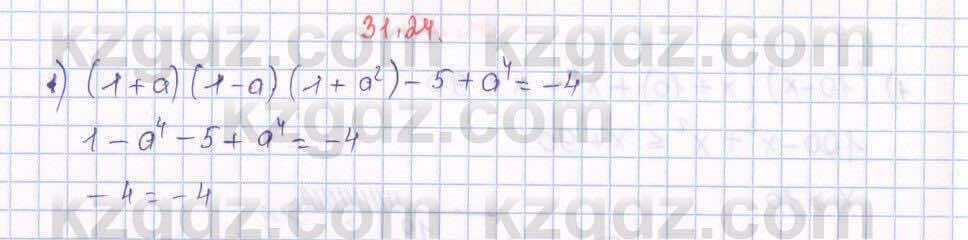 31.24.
1) (1+a)(1-a)(1+a²)-5+a⁴=-4
1-a⁴-5+a⁴=-4
-4=-4
kzgdz.com kzgdz.com
kzgdz.com
kzgdz.com kzgdz.com